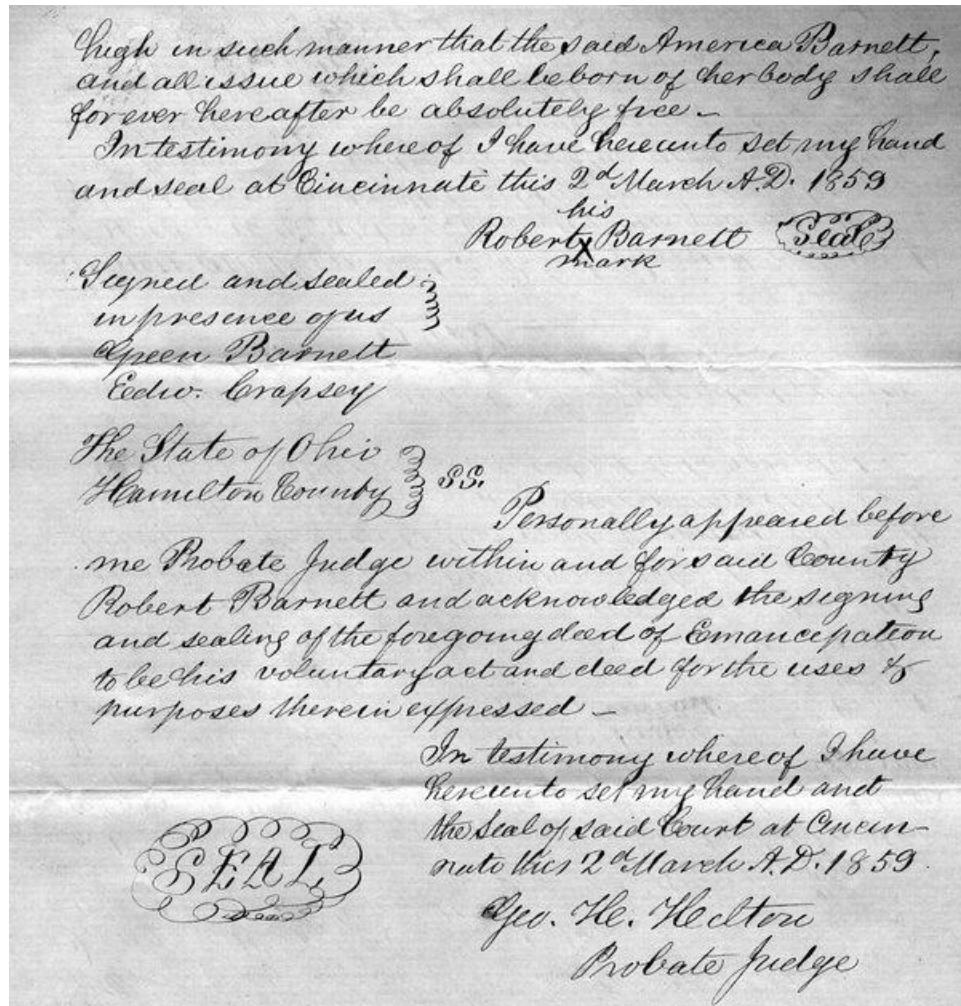 high in such manner that the said America Barnett,
and all issue which shall be born of her body shall
forever hereafter be absolutely free –
In testimony whereof I have hereunto set my hand
and seal at Cincinnati this 2d March A.D. 1859
his
Robert X Barnett Seal
mark
Signed and sealed
in presence of us
Green Barnett
Edw. Crapsey
The State of Ohio
Hamilton County SS.
Personally appeared before
me Probate Judge within and for said County
Robert Barnett and acknowledged the signing
and sealing of the foregoing deed of Emancipation
to be his voluntary act and deed for the uses &
purposes therein expressed –
In testimony whereof I have
hereunto set my hand and
the Seal of said Court at Cincin-
nati this 2d March A.D. 1859.
SEAL
Geo. H. Hilton
Probate Judge